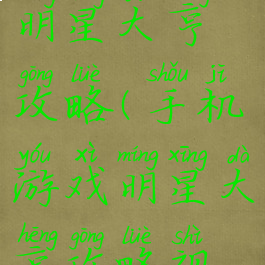 明星大亨
gōng lüè shǒu jī
攻略(手机
yóu xì míng xīng dà
游戏明星大
hēng gōng lüè shì
亨攻略视